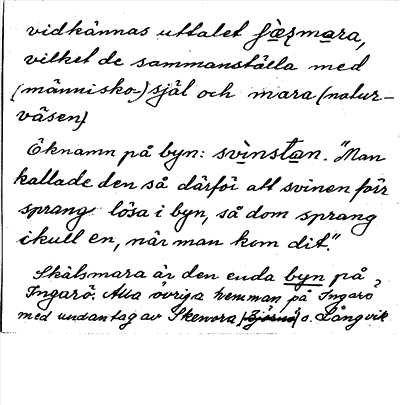 vidkännas uttalet
vilket de sammanställa med
(människo-)själ och mara (natur-
väsen)
Öknamn på byn: svinstan. "Man
kallade den så därför att svinen förr
sprang lösa i byn, så dom sprang
ikull en, när man kom dit."
Skälsmara är den enda byn på
Ingarö. Alla övriga hemman på Ingarö
med undantag av Skenora o. Långvik